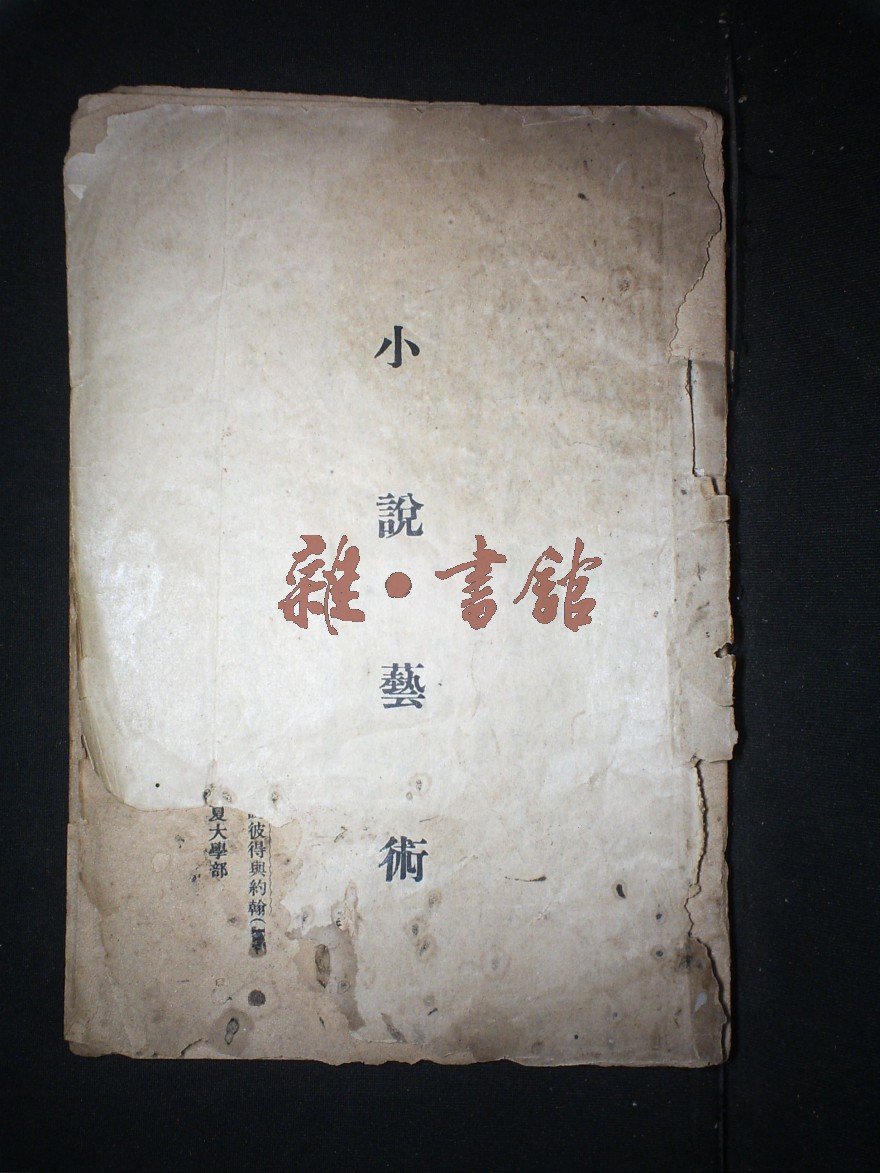 小說藝術
雜·書館
彼得與約翰（
夏大學部